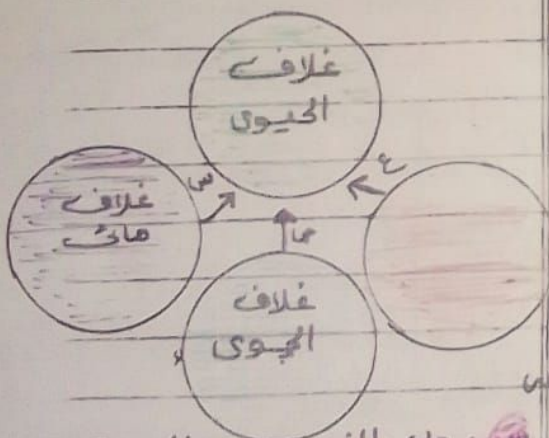 غلاف
الحيوى
س
ع
غلاف
مائى
ص
غلاف
الجوى